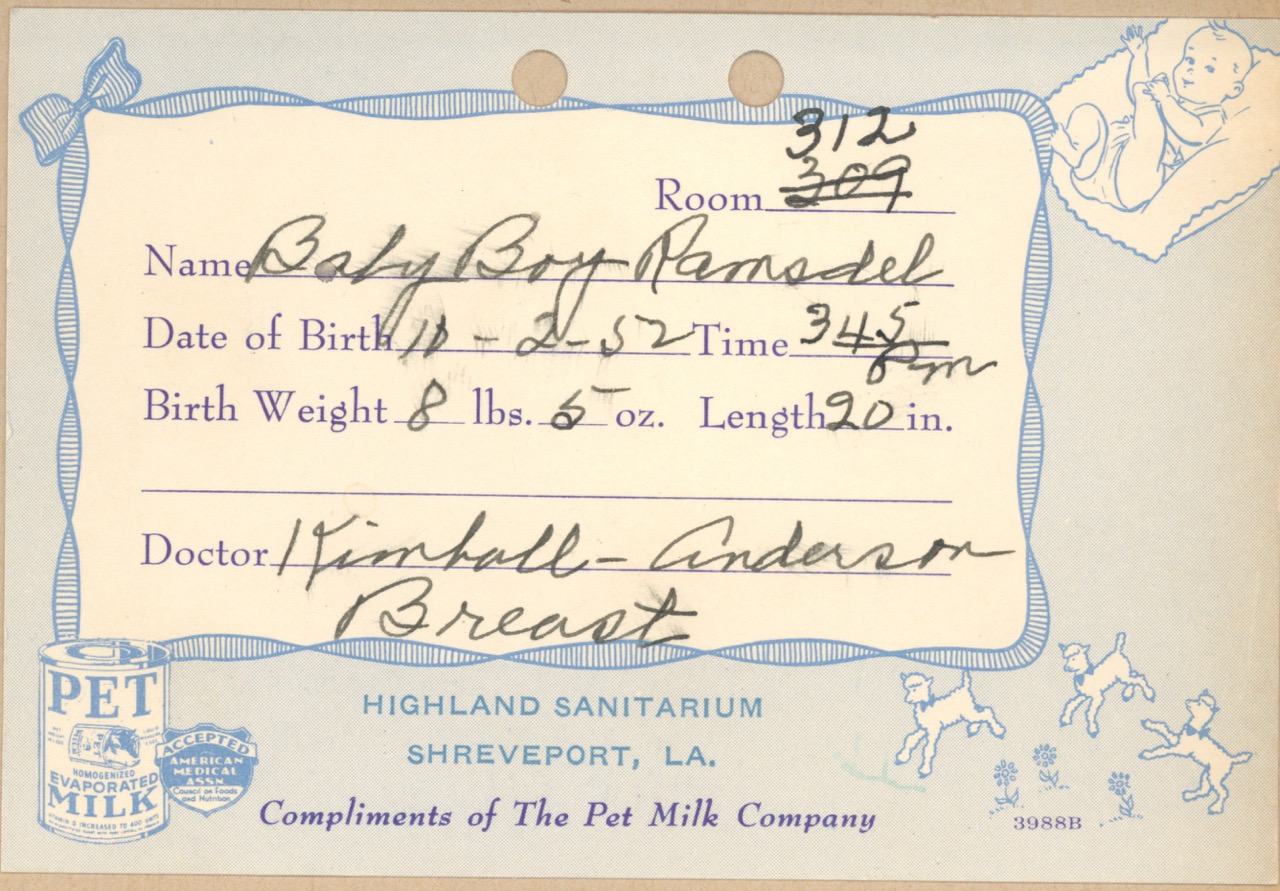 312
Room 309
Name Baby Boy Ramsdel
Date of Birth 10-2-52 Time 345
pm
Birth Weight 8 lbs. 5 oz. Length 20 in.
Doctor Kimball - Anderson
Breast
PET
HOMOGENIZED
EVAPORATED
MILK
VITAMIN D INCREASED TO 400 UNITS
ACCEPTED
AMERICAN
MEDICAL
ASSN
Council on Foods
and Nutrition
HIGHLAND SANITARIUM
SHREVEPORT, LA.
Compliments of The Pet Milk Company
3988B